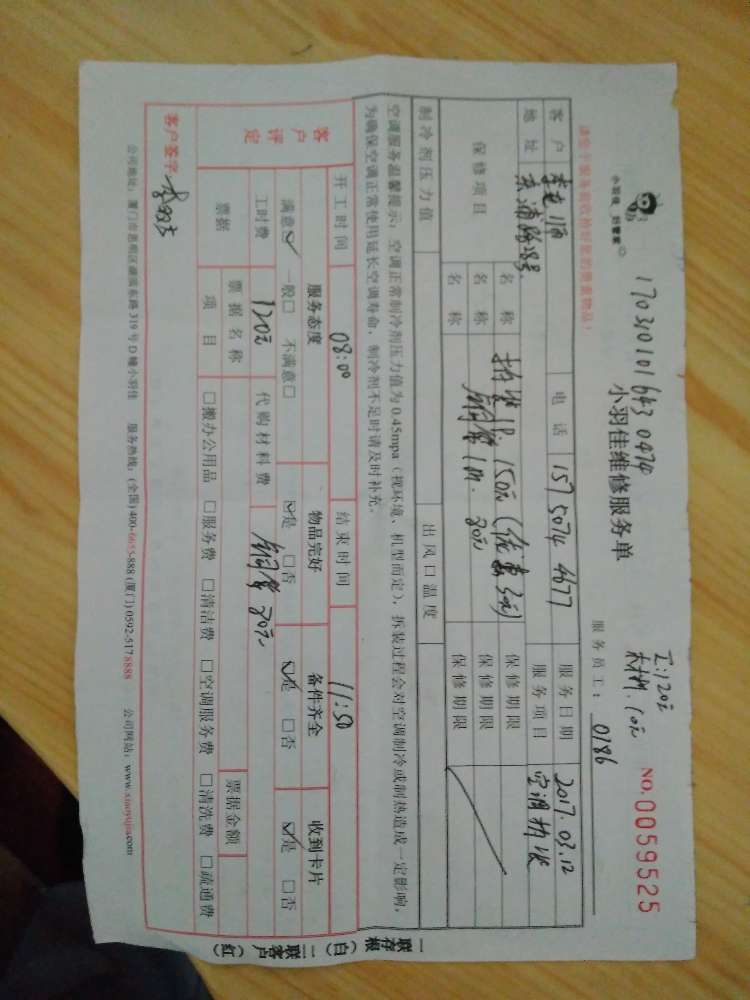 小羽佳 好管家
170310101643 0474
工:120元
材料:10元
NO.0059525
小羽佳维修服务单
服务员工: 0186
请您于服务前收拾好您的贵重物品!
客户 电话 157 5074 4677 服务日期 2017.03.12
地址 服务项目 空调拆装
保修项目 名称 拆装1P. 150元 保修期限
名称 铜管1M. 80元 保修期限
名称 保修期限
制冷剂压力值 出风口温度
空调服务温馨提示:空调正常制冷剂压力值为0.45mpa(视环境、机型而定),拆装过程会对空调制冷或制热造成一定影响,
为确保空调正常使用延长空调寿命,制冷剂不足时请及时补充。
开工时间 08:00 结束时间 11:50
客户评定 服务态度 物品完好 备件齐全 收到卡片
满意☑ 一般□ 不满意□ ☑是 □否 ☑是 □否 ☑是 □否
工时费 120元 代购材料费 铜管80元
票据 票据名称 票据金额
项目 □搬办公用品 □服务费 □清洁费 □空调服务费 □清洗费 □疏通费
客户签字:
公司地址:厦门市思明区湖滨东路319号D幢小羽佳 服务热线:(全国)400-6655-888 (厦门)0592-5178888 公司网站:www.xiaoyujia.com
一联存根(白) 二联客户(红)